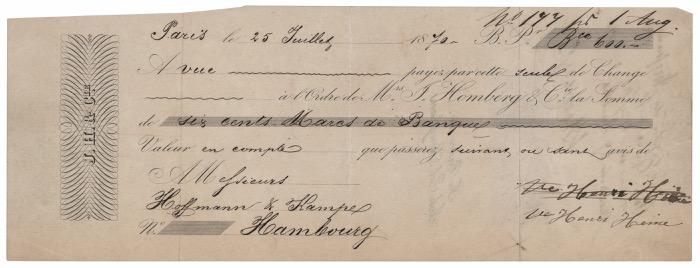 No 177 pr 1 Aug.
Paris le 25 Juillet 1870 B. Pr Bco 600.-
A vue payez par cette seule de Change
à l'Ordre de Mrs J. Homberg & Cie la Somme
de six cents Marcs de Banque
Valeur en compte que passerez suivant, ou sans avis de
A Messieurs
Hoffmann & Kampe
No. Hambourg
Vve Henri Heine
Vve Henri Heine
J. H. & Cie